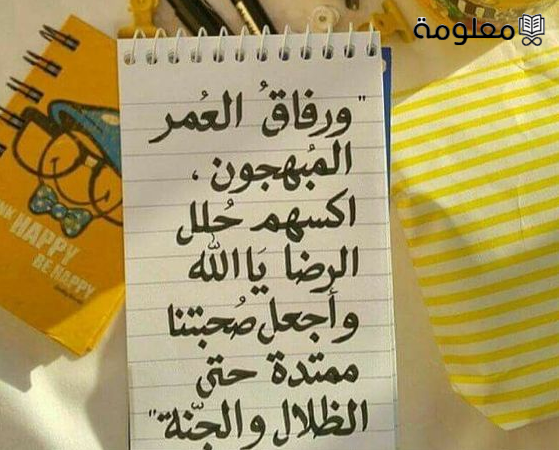 معلومة
"ورفاقُ العُمر
المُبهجون،
اكسهم حُلل
الرضا يَا الله
وأجعل صُحبتنا
ممتدة حتى
الظلال والجنّة"
NK HAPPY
BE HAPPY